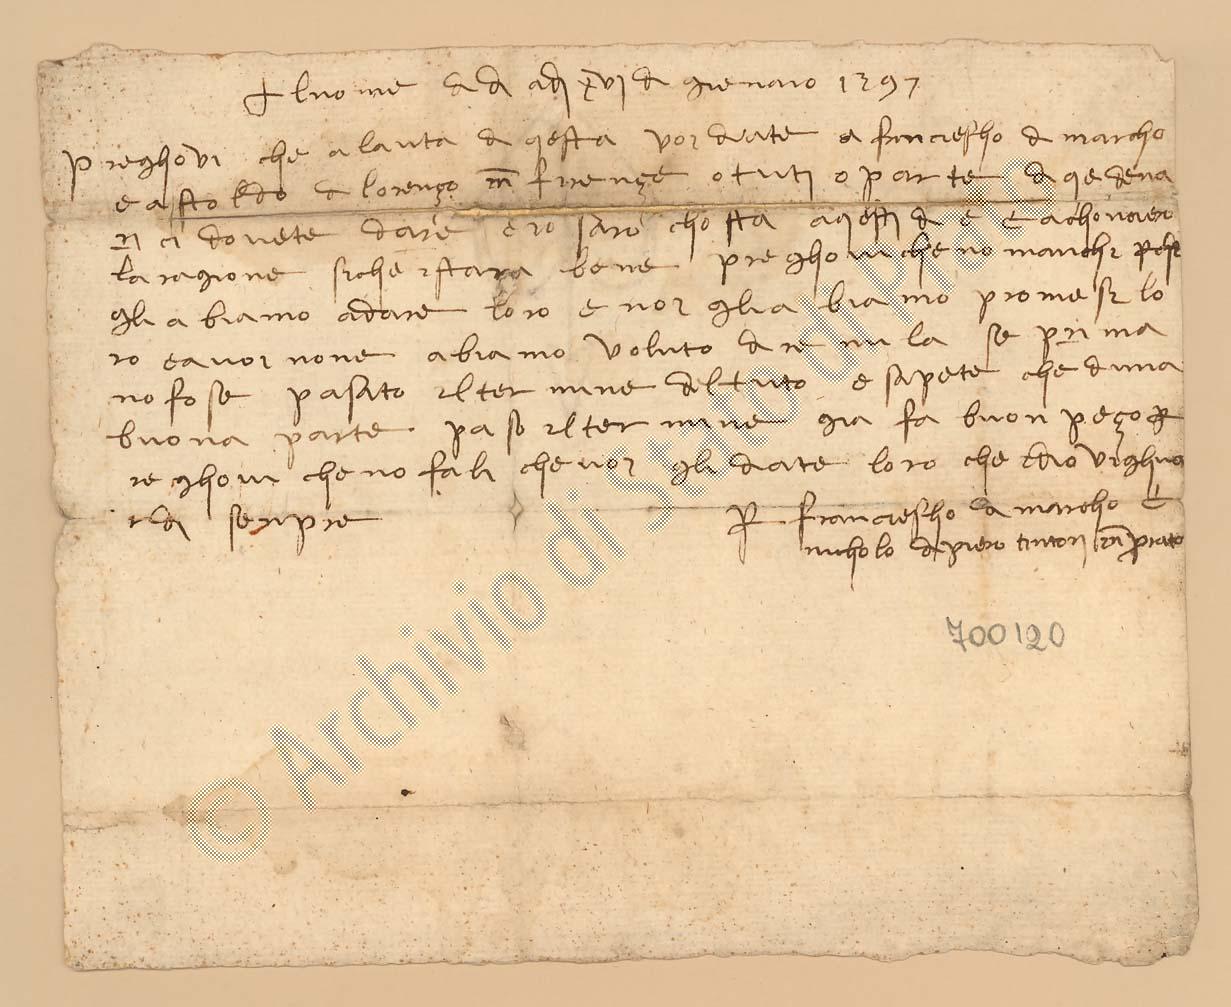 + luome da d adj xvj di giennaio 1397
Preghovi che alauta di qesta voi diate a franciescho di marcho
e a stoldo di lorenço in firençe o tuti o parte di qe dena
ri ci dovete dare e io sarò chostà a qesti dì e achonciero
la ragione siche istara bene preghovi che no manchi
gli abiamo a dare loro e noi gli abiamo promesi lo
ro e a voi none abiamo voluto dire nula se prima
no fose pasato il termine del tuto e sapete che duna
buona parte pasò il termine già fa buon peço p
reghovi che no fali che voi gli diate loro che idio vi ghuar
di senpre
P franciescho di marcho e
nicholo di piero tintori in prato
700120
© Archivio di Stato di Prato